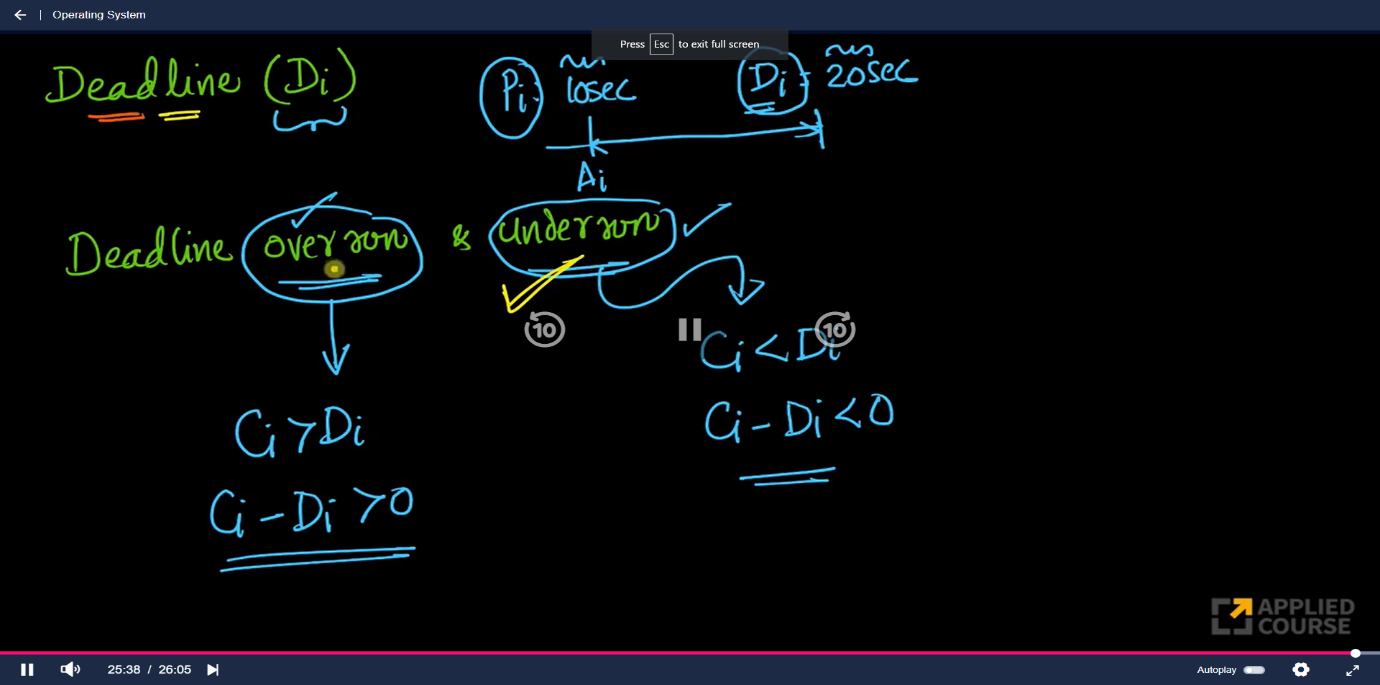 Operating System
Press Esc to exit full screen
Deadline (Di)
Pi: 10sec
Di: 20sec
Ai
Deadline overrun & underrun
10
10
Ci < Di
Ci - Di < 0
Ci > Di
Ci - Di > 0
APPLIED
COURSE
25:38 / 26:05
Autoplay